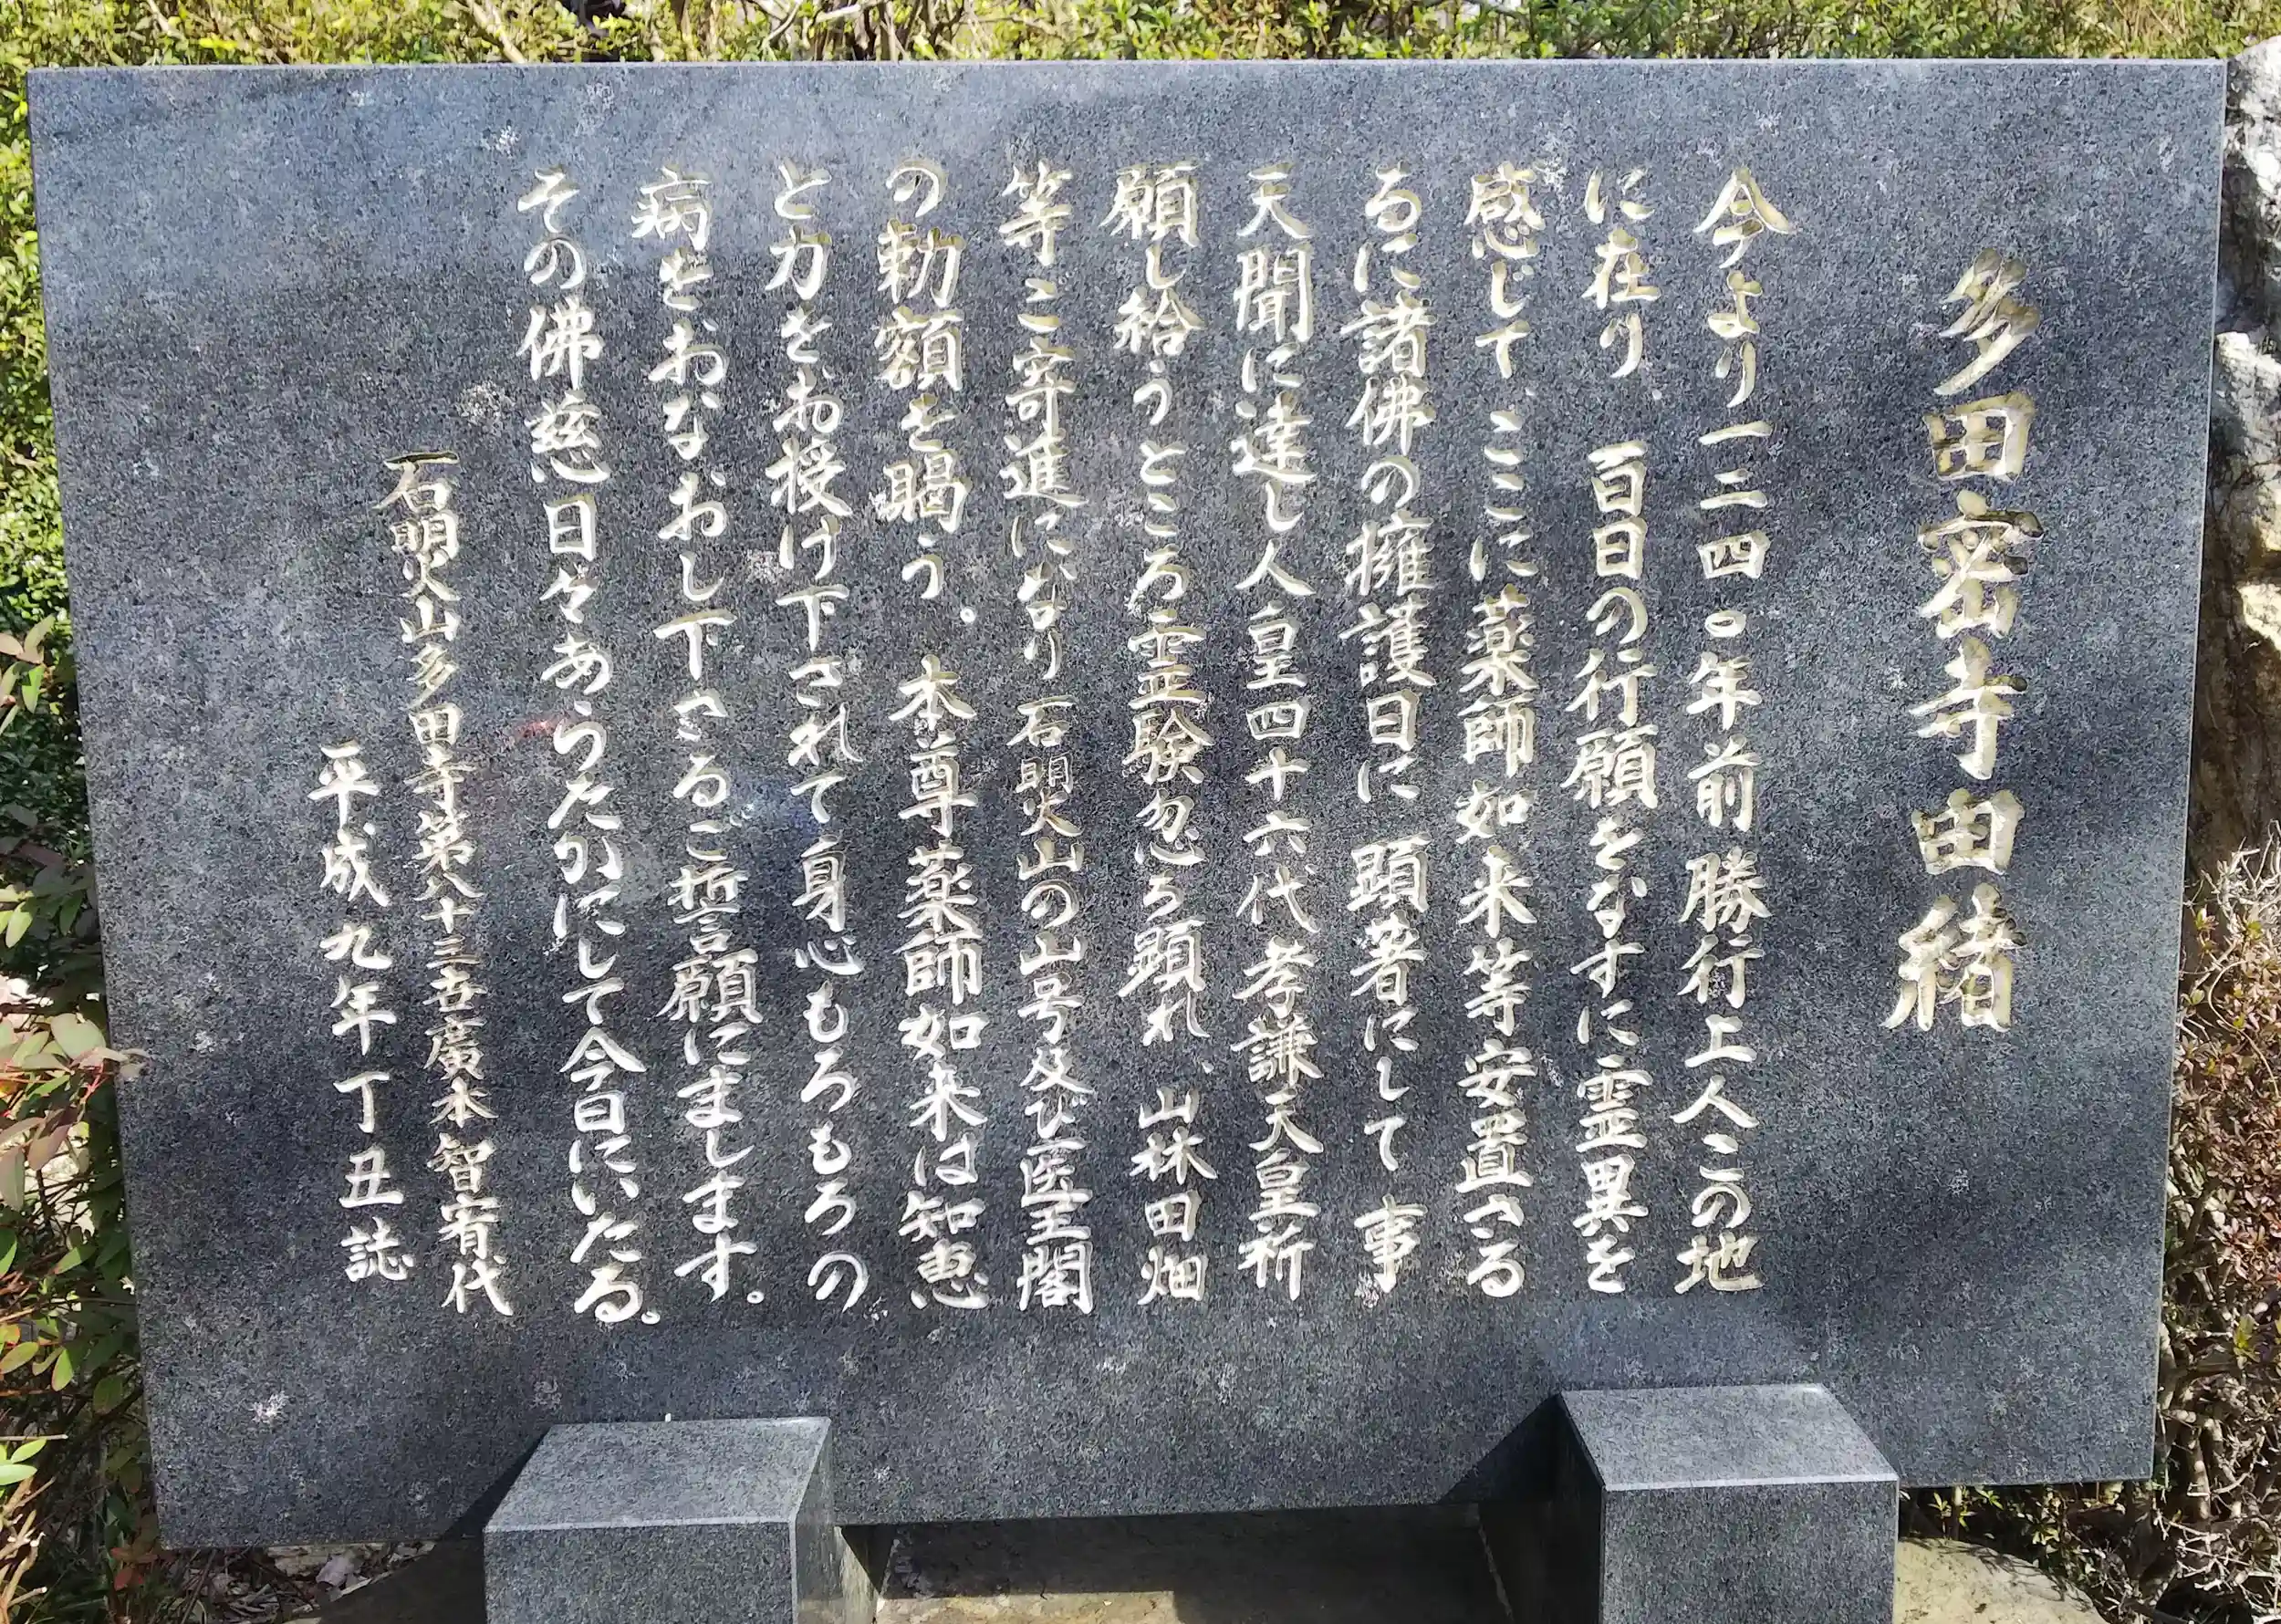 多田密寺由緒
今より一二四〇年前 勝行上人この地
に在り 百日の行願をなすに霊異を
感じて、ここに薬師如来等安置さる
るに諸佛の擁護日に 顕著にして 事
天聞に達し人皇四十六代孝謙天皇祈
願し給うところ霊験忽ち顕れ、山林田畑
等ご寄進になり 石明火山の山号及び医王閣
の勅額を賜う。 本尊薬師如来は知恵
と力をお授け下されて身心もろもろの
病をおなおし下さるご誓願にまします。
その佛慈日々あらたかにして今日にいたる。
石明火山多田寺第八十三世廣本智宥代
平成九年丁丑誌